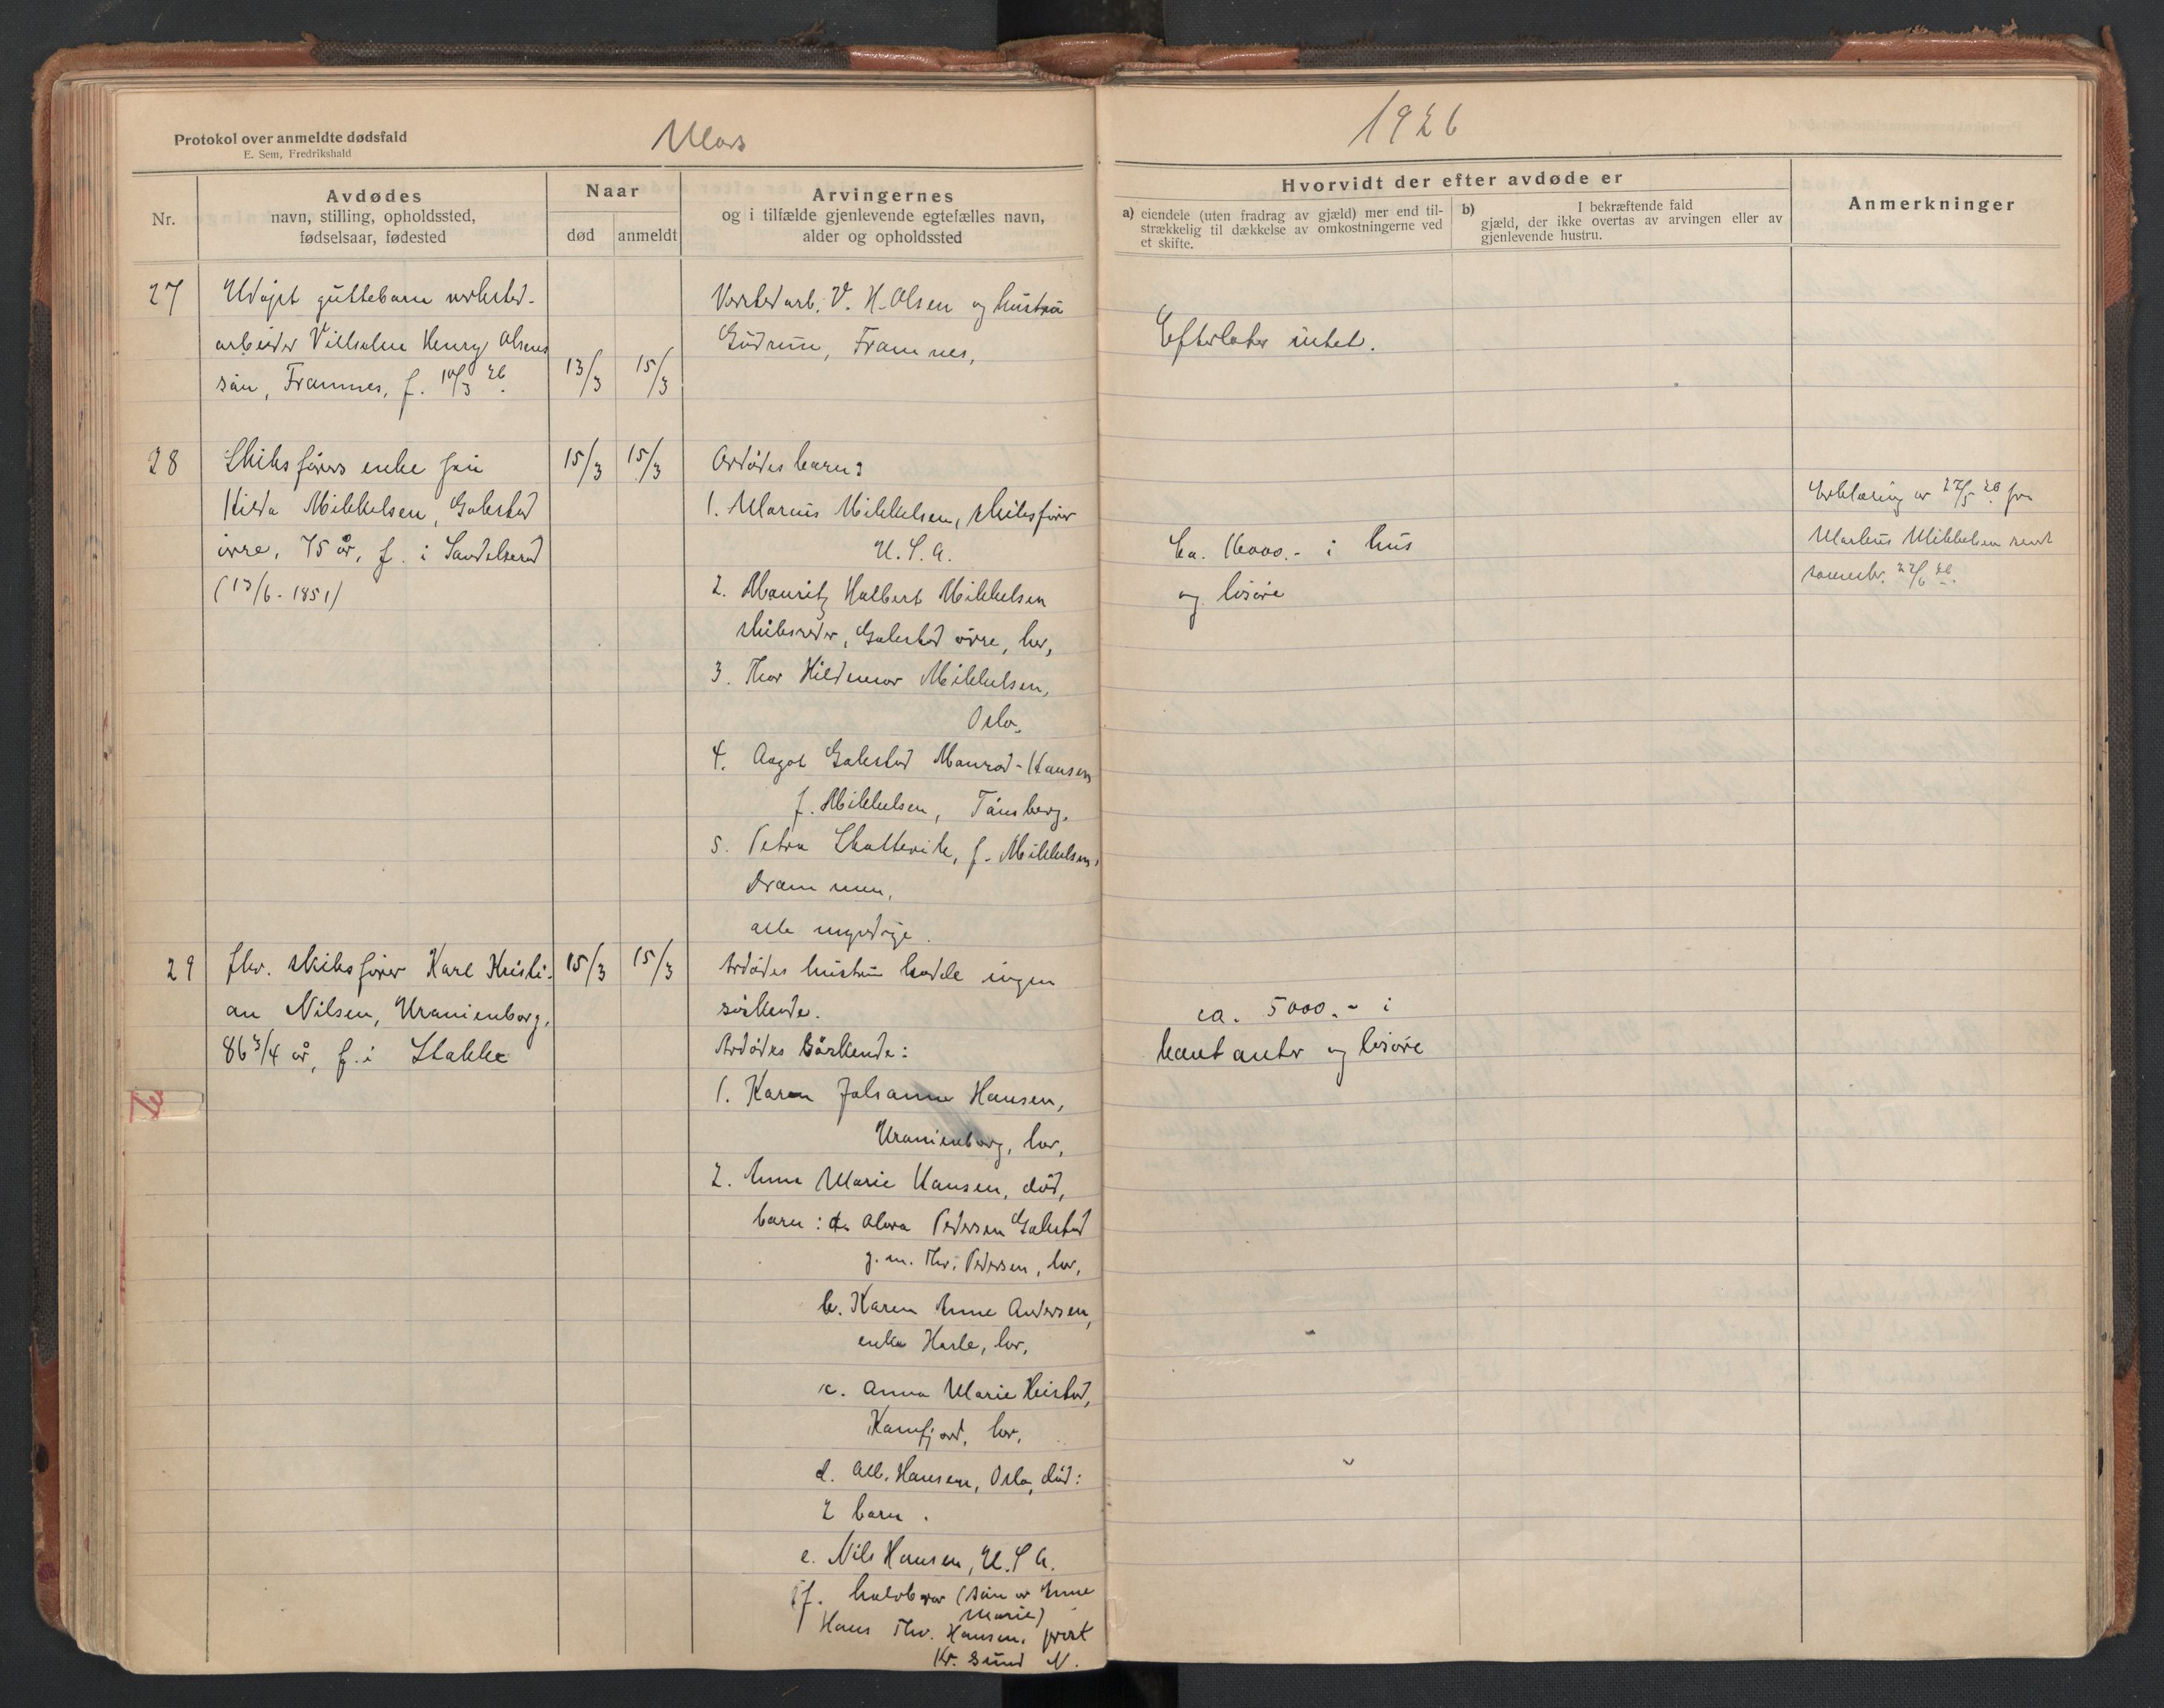 Protokol over anmeldte dødsfald
E. Sem, Fredrikshald
Mars
1926
Nr.
Avdødes
navn, stilling, opholdssted,
fødselsaar, fødested
Naar
død
anmeldt
Arvingernes
og i tilfælde gjenlevende egtefælles navn,
alder og opholdssted
Hvorvidt der efter avdøde er
a) eiendele (uten fradrag av gjæld) mer end til-
strækkelig til dækkelse av omkostningerne ved
et skifte.
b) I bekræftende fald
gjæld, der ikke overtas av arvingen eller av
gjenlevende hustru.
Anmerkninger
27
Udøpt guttebarn verksted-
arbeider Vilhelm Henry Olsens
søn, Framnes, f. 10/3 26.
13/3
15/3
Verkstedarb. V. H. Olsen og hustru
Gudrun, Framnes,
Efterlater intet.
28
Skibsførers enke fru
Hilda Mikkelsen, Gokstad
øvre, 75 år, f. i Sandeherred
(13/6-1851)
15/3
15/3
Avdødes barn:
1. Marius Mikkelsen, skibsfører
U.S.A.
2. Mauritz Halbert Mikkelsen
skibsreder, Gokstad øvre, her,
3. Thor Hildemar Mikkelsen,
Oslo.
4. Aagot Gokstad Monrad-Hansen
f. Mikkelsen, Tønsberg.
5. Petra Skattevik, f. Mikkelsen,
Drammen,
alle myndige.
Ca. 16000.- i hus
og løsøre
Erklæring av 22/5 26 fra
Markus Mikkelsen sendt
sorenskr. 22/6 26.
29
fhv. skibsfører Karl Kristi-
an Nilsen, Uranienborg,
86 3/4 år, f. i Stokke
15/3
15/3
Avdødes hustru hadde ingen
søskende.
Avdødes søskende:
1. Karen Johanne Hansen,
Uranienborg, her,
2. Anne Marie Hansen, død,
barn: a. Alvra Pedersen Gokstad
g. m. Thv. Pedersen, her,
b. Karen Anne Andersen,
enke Hasle, her,
c. Anna Marie Heistad,
Kamfjord, her,
d. Alb. Hansen, Oslo, død:
2 barn.
e. Nils Hansen, U.S.A.
f. halvbror (søn av Anne
Marie)
Hans Thv. Hansen, prest
Kr. sund N.
ca. 5000.- i
kontanter og løsøre